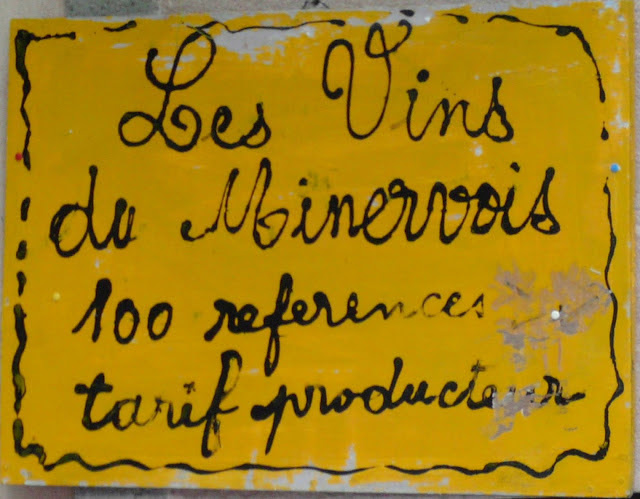 Les Vins
du Minervois
100 references
tarif producteur